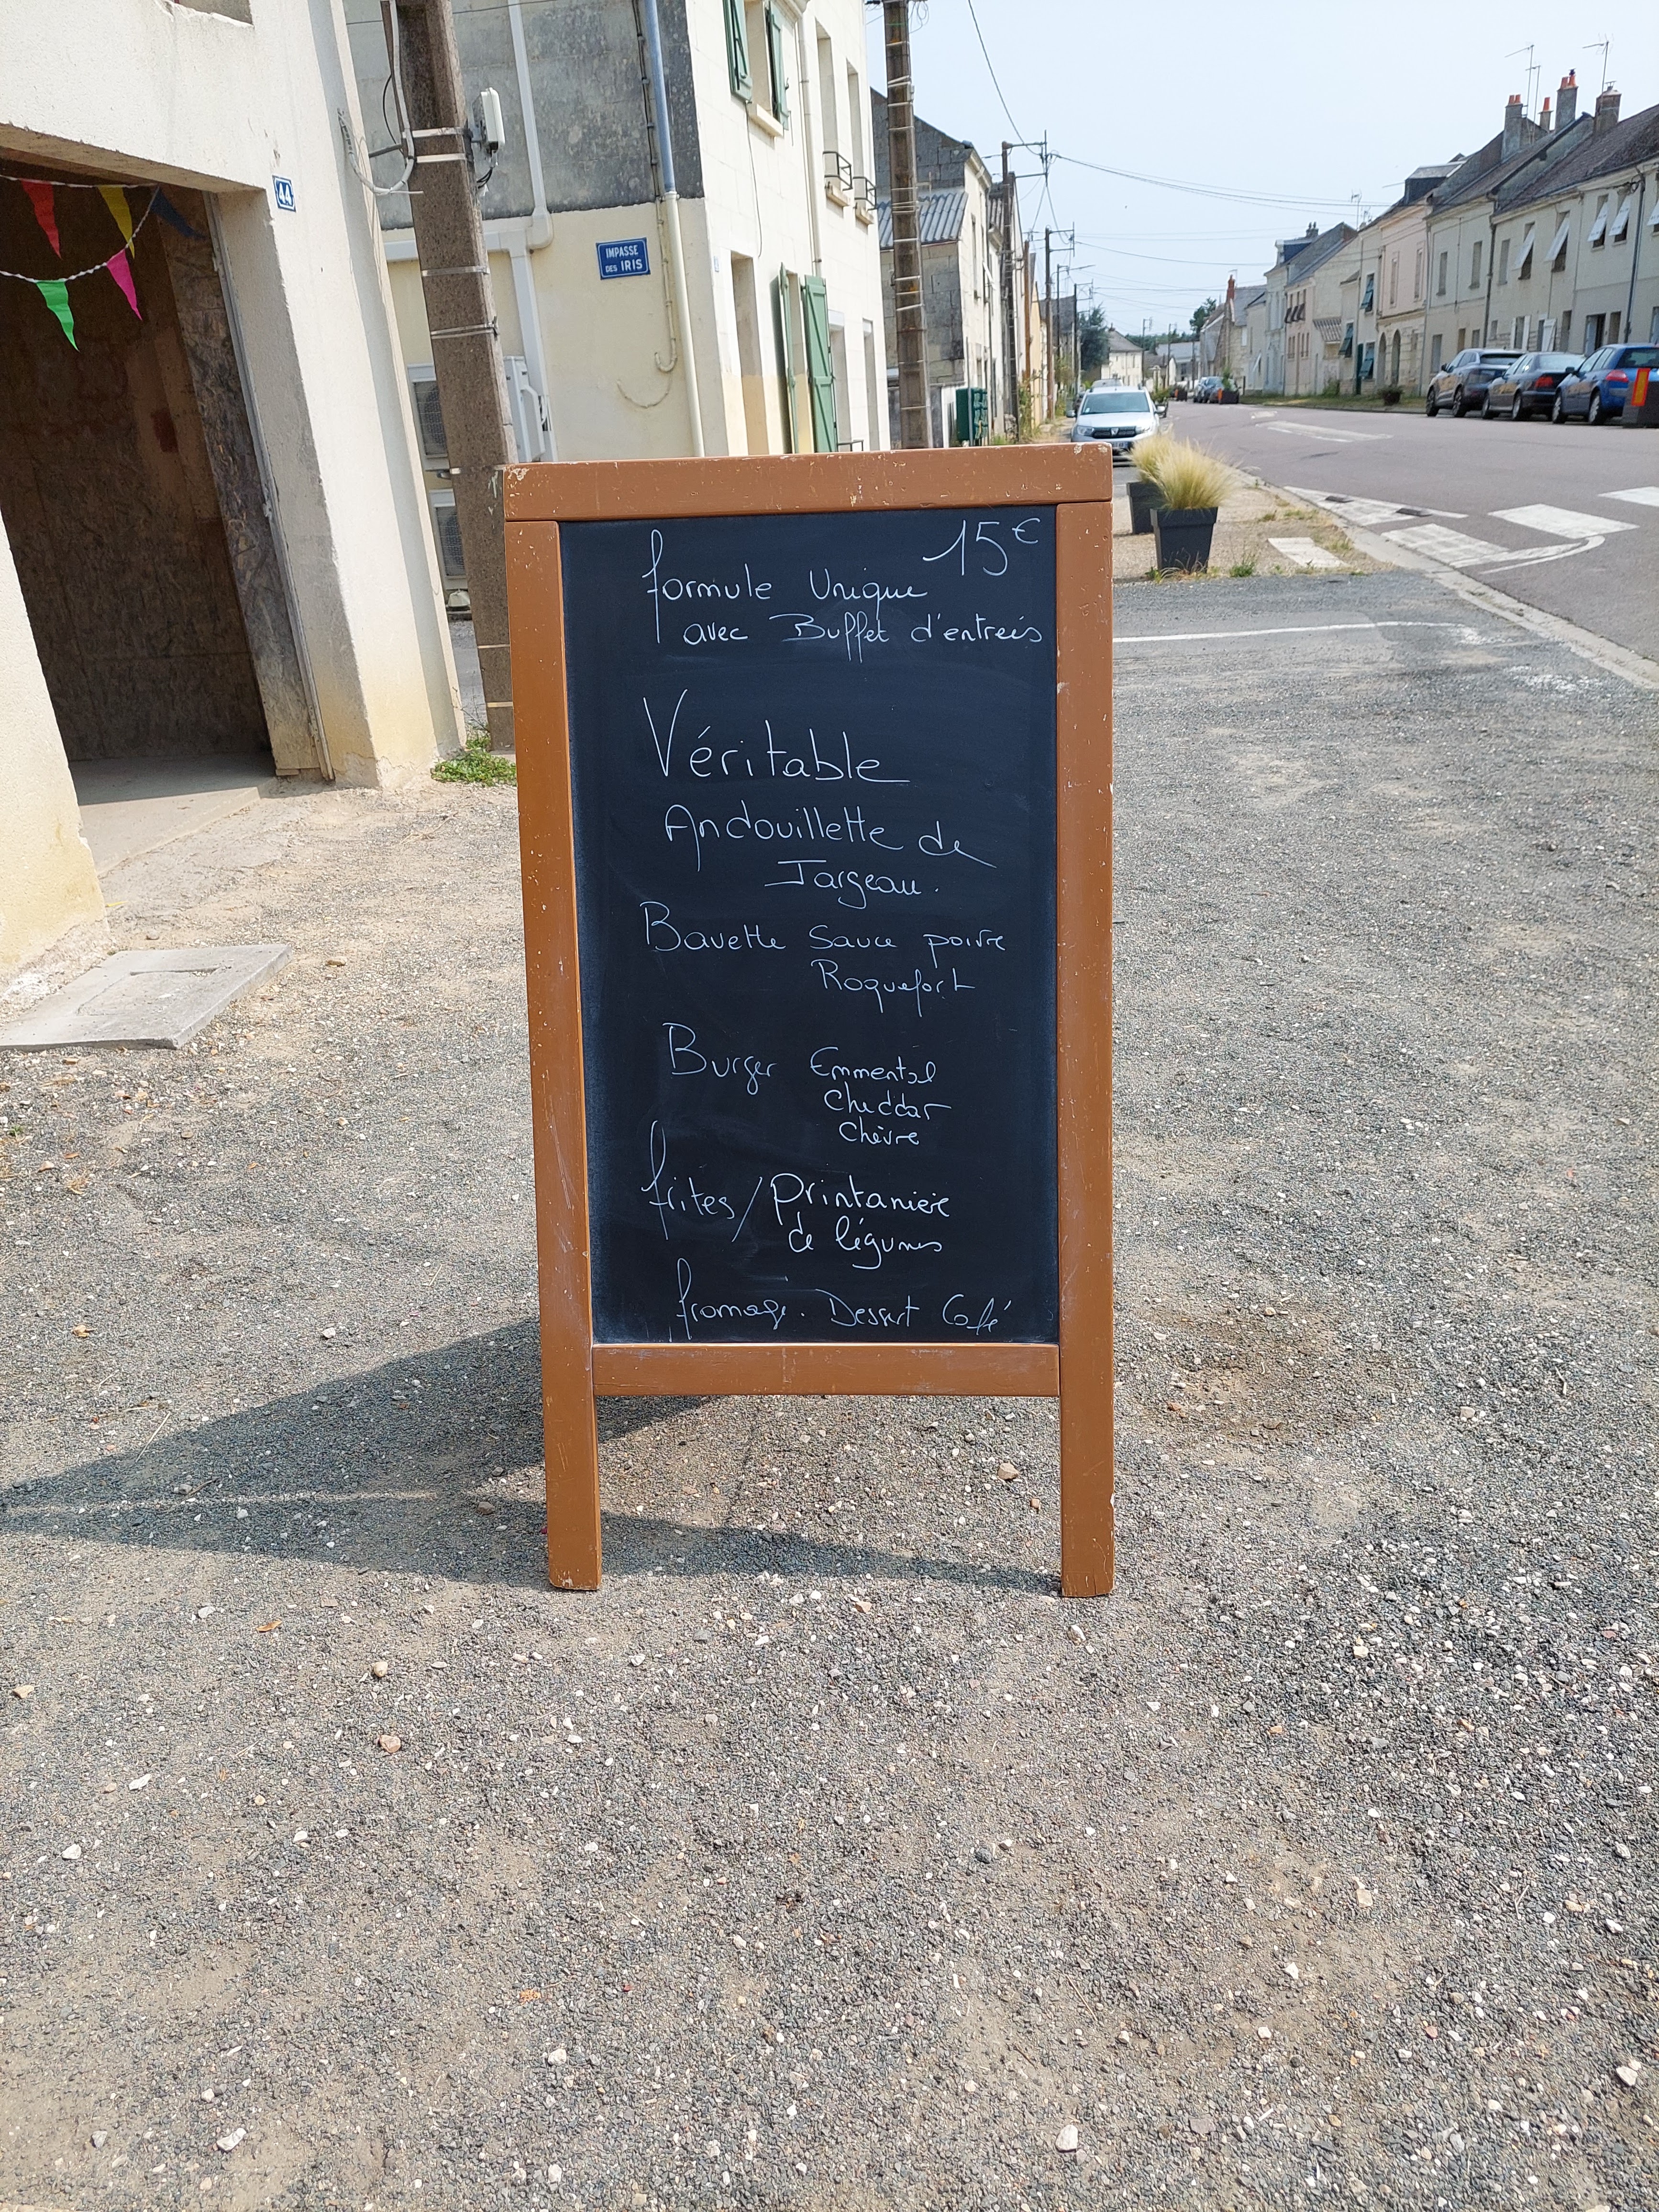 44
IMPASSE
DES IRIS
15€
formule Unique
avec Buffet d'entreés
Véritable
Andouillette de
Jargeau.
Bavette Sauce poivre
Roquefort
Burger Emmental
Cheddar
Chèvre
frites/Printanière
de légumes
fromage. Dessert Café